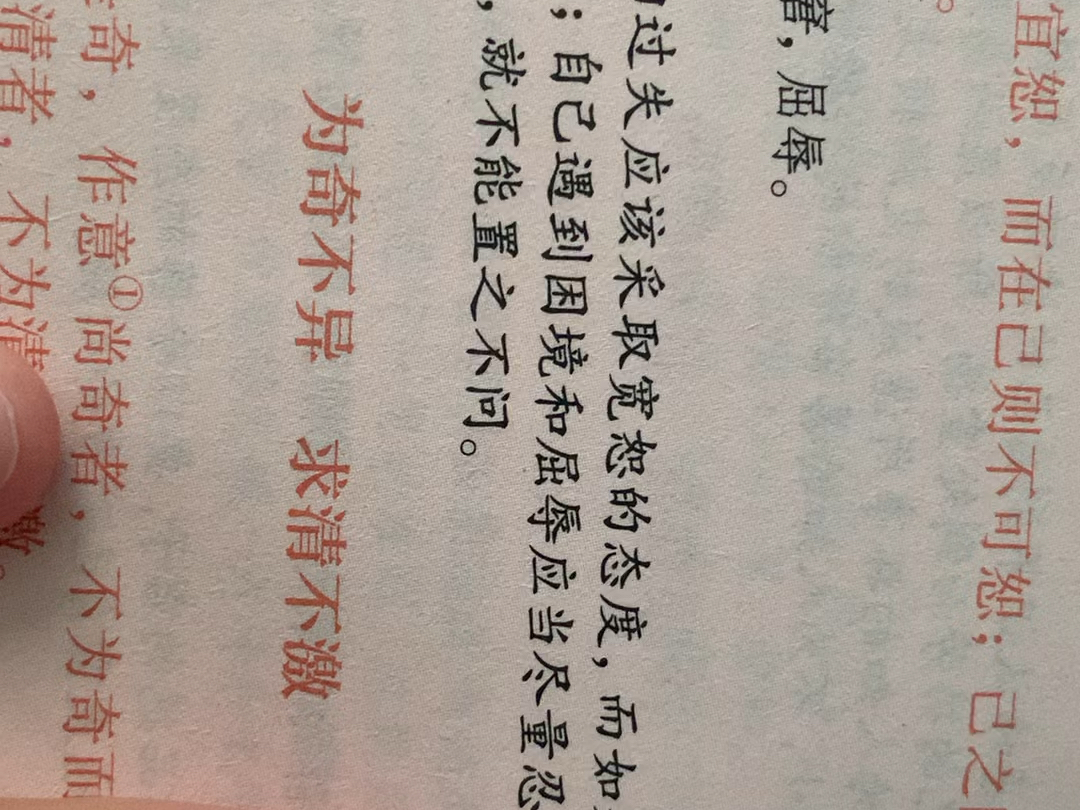 宜恕，而在己则不可恕；己之
。
，屈辱。
过失应该采取宽恕的态度，而如
；自己遇到困境和屈辱应当尽量忍
，就不能置之不问。
为奇不异 求清不激
奇，作意①尚奇者，不为奇而
清者，不为清激。